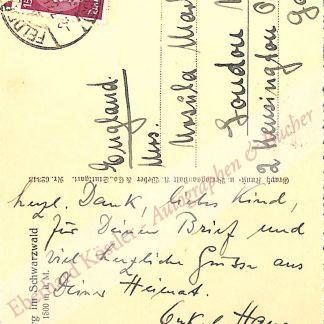 England.
Mrs.
Ursula Mar
London
2 Kensington
FELDB
Graph. Kunst- u. Verlagsanstalt A. Weber & Co. Stuttgart. Nr. 62343
rg im Schwarzwald
1500 m ü M.
herzl. Dank, liebes Kind,
für Deinen Brief und
viel herzliche Grüsse aus
Deiner Heimat.
Eberhard Köstler Autographen & Bücher